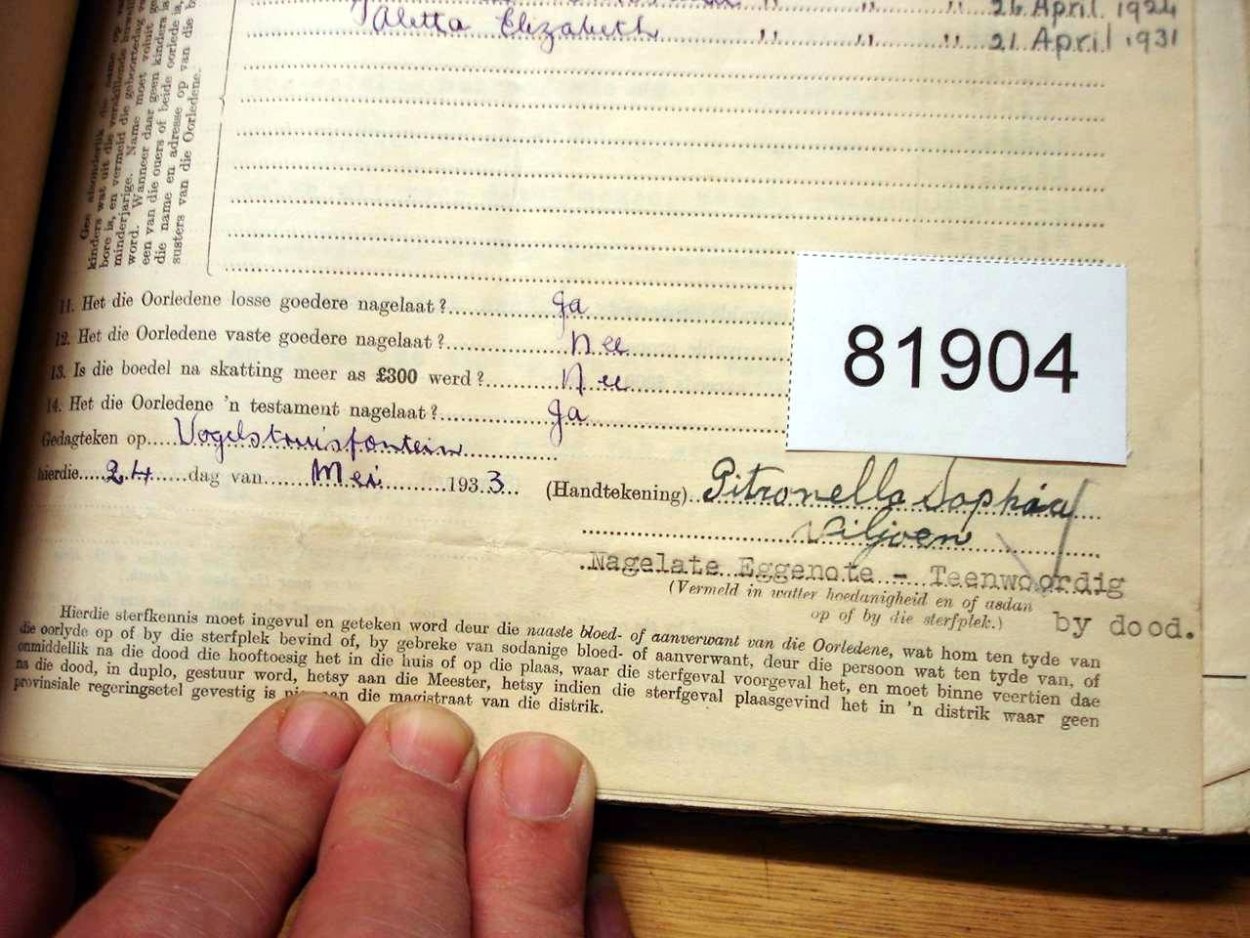 " " " 26 April 1924
Aletta Elizabeth " " " 21 April 1931
Gee afsonderlik die name op van
kinders wat uit die verskillende huwelike
bore is, en vermeld die geboortedag
minderjarige. Name moet voluit gegee
word. Wanneer daar geen kinders is
een van die ouers of beide oorlede is,
die name en adresse op van die b
susters van die Oorledene.
11. Het die Oorledene losse goedere nagelaat? Ja
12. Het die Oorledene vaste goedere nagelaat? Nee
13. Is die boedel na skatting meer as £300 werd? Nee
14. Het die Oorledene 'n testament nagelaat? Ja
81904
Gedagteken op Vogelstruisfontein
hierdie 24 dag van Mei 1933. (Handtekening) Pitronella Sophia
Viljoen
Nagelate Eggenote - Teenwoordig
(Vermeld in watter hoedanigheid en of asdan
op of by die sterfplek.) by dood.
Hierdie sterfkennis moet ingevul en geteken word deur die naaste bloed- of aanverwant van die Oorledene, wat hom ten tyde van
die oorlyde op of by die sterfplek bevind of, by gebreke van sodanige bloed- of aanverwant, deur die persoon wat ten tyde van, of
onmiddellik na die dood die hooftoesig het in die huis of op die plaas, waar die sterfgeval voorgeval het, en moet binne veertien dae
na die dood, in duplo, gestuur word, hetsy aan die Meester, hetsy indien die sterfgeval plaasgevind het in 'n distrik waar geen
provinsiale regeringsetel gevestig is nie, aan die magistraat van die distrik.